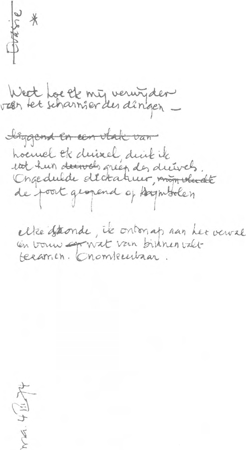 Evasie
*
Weet hoe ik mij verwijder
van het scharnier der dingen —
liggend in een vlak van
hoewel ik duizel, duik ik
uit hun greep des duivels.
Ongeduide dictatuur,
de poort geopend of
elke stonde, ik ontsnap aan het verval
en vouw op wat van binnen valt
tezamen. Onomkeerbaar.